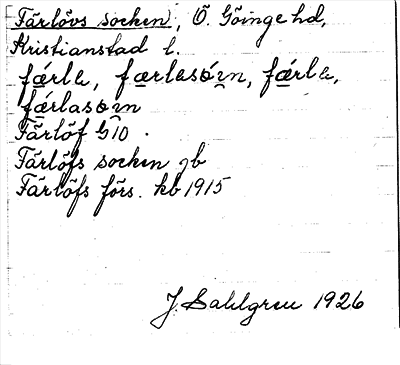 Färlövs socken, Ö. Göinge hd,
Kristianstad l.
fǽrla, færlasókn, fǽrla,
fǽrlasokn
Färlöf G10.
Färlöfs socken gb
Färlöfs förs. kb 1915
J. Sahlgren 1926